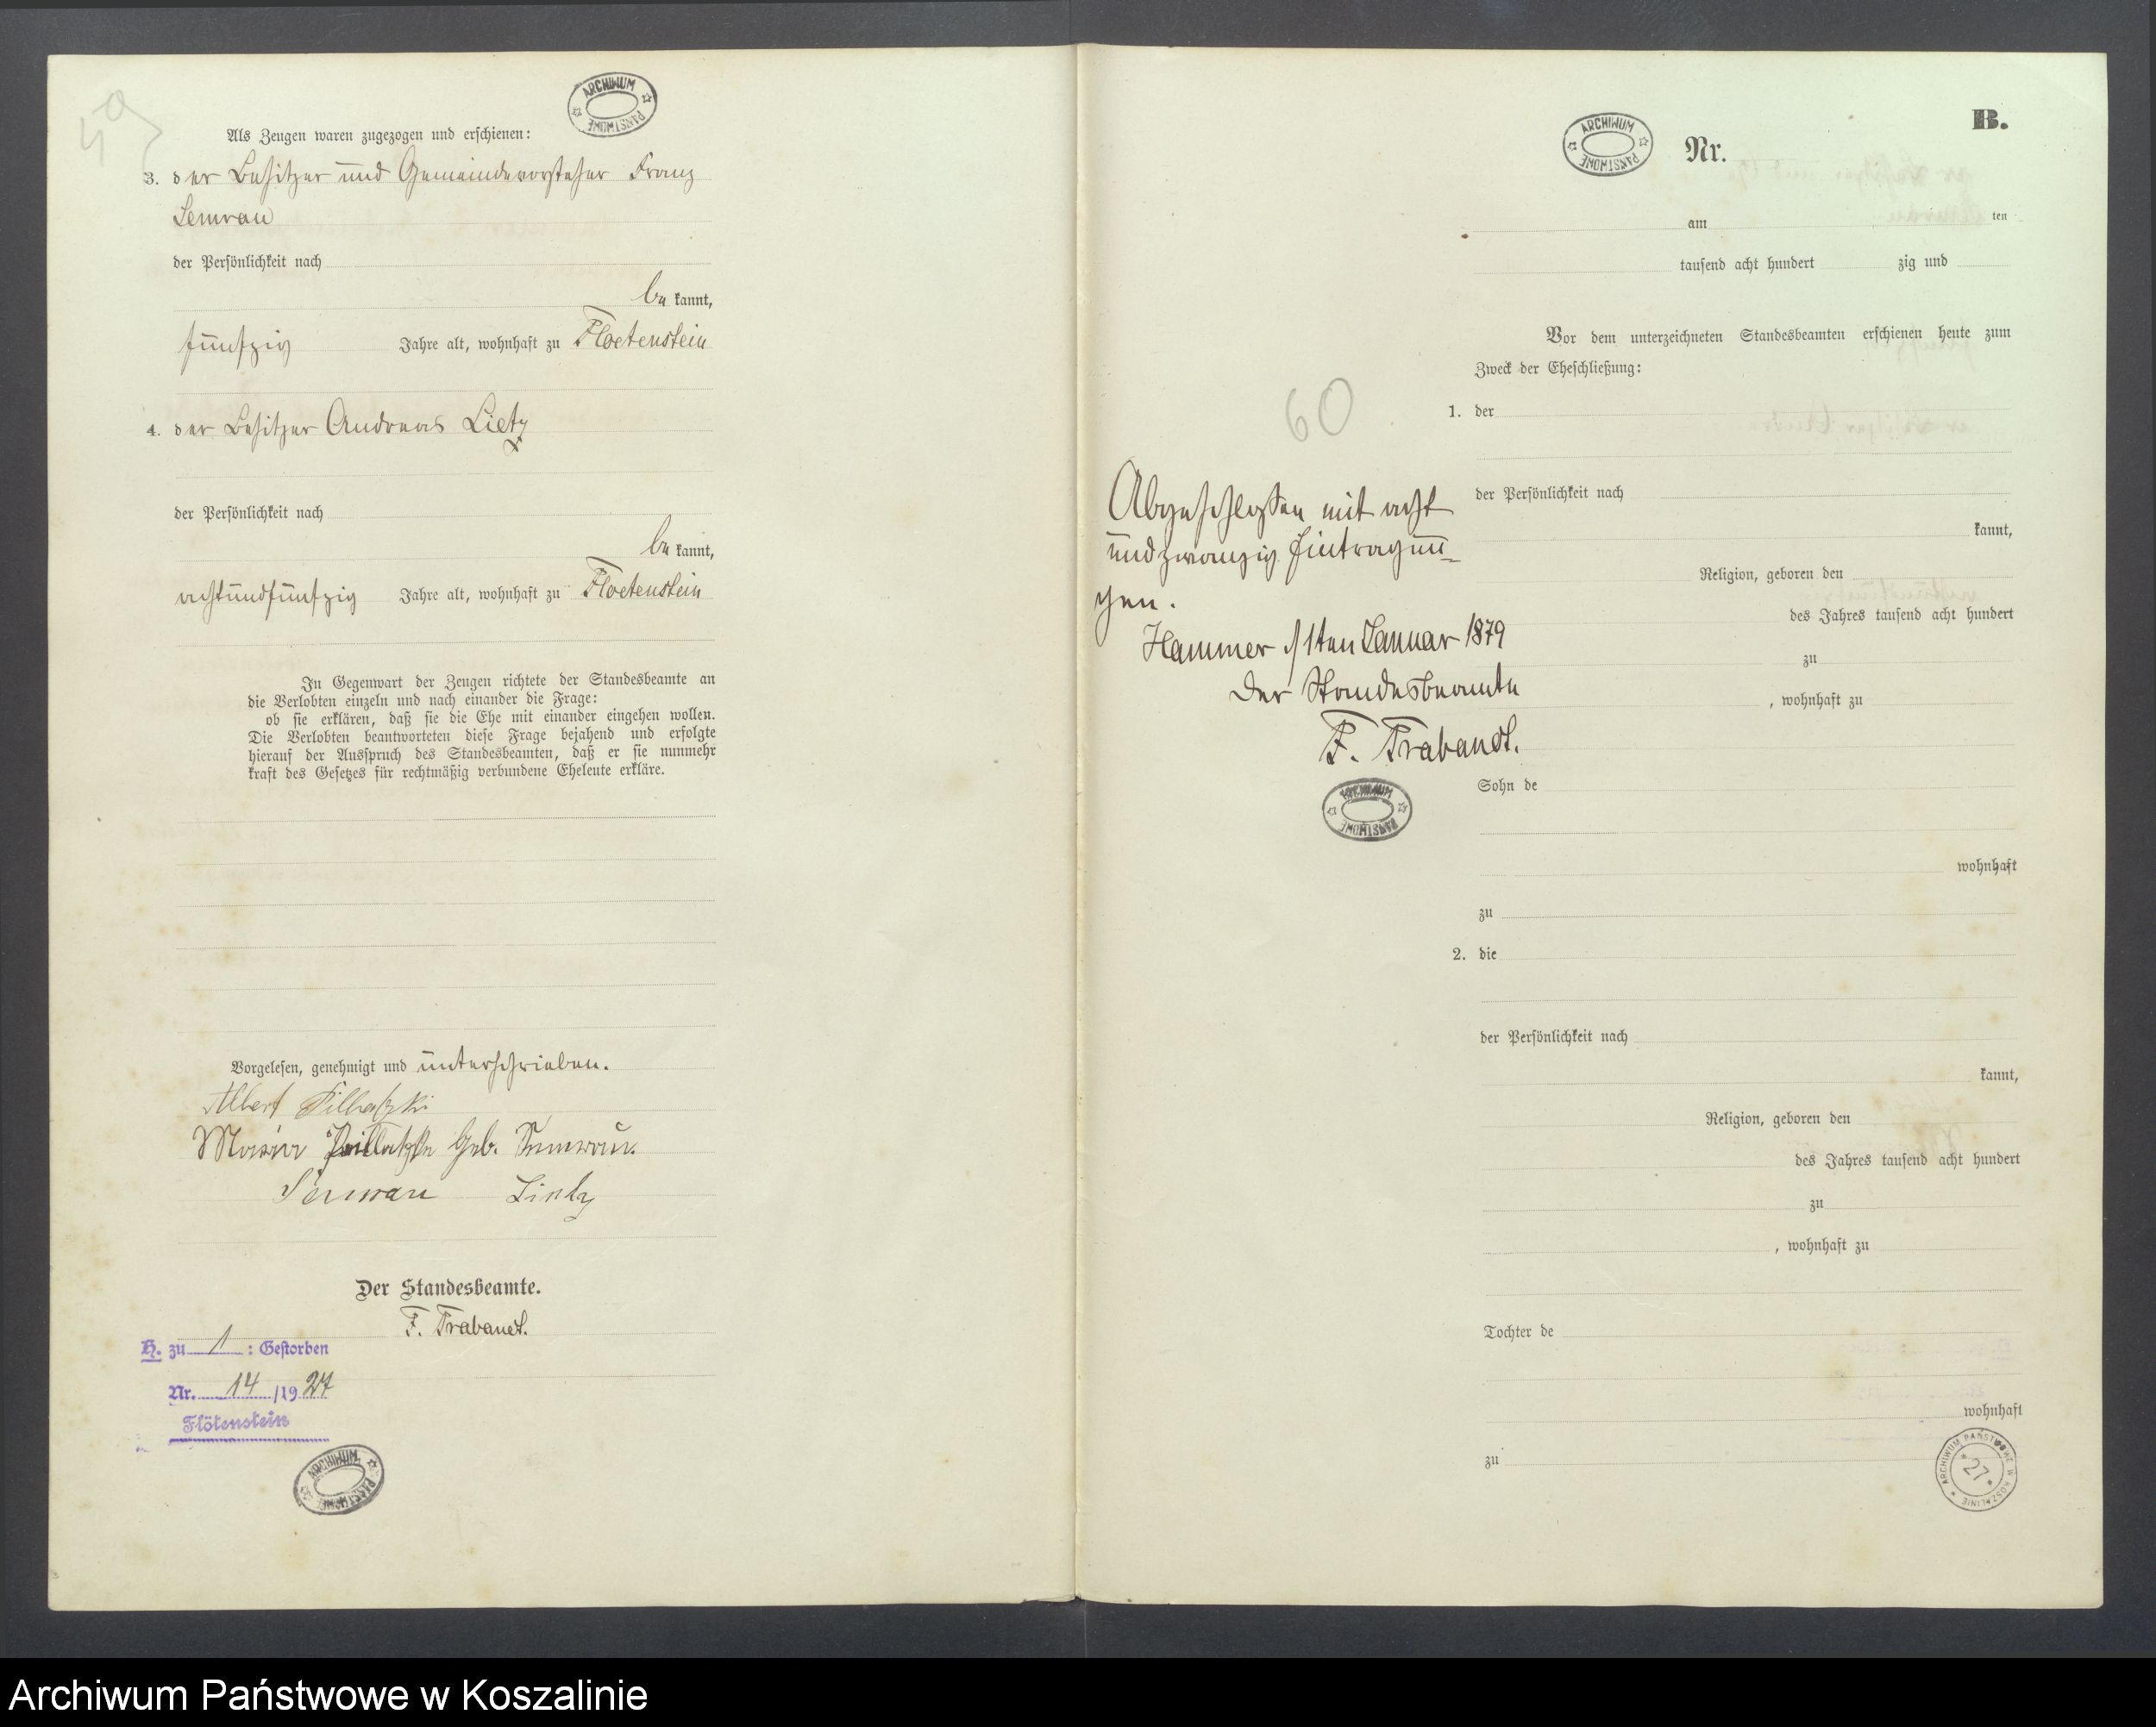 59
ARCHIWUM PAŃSTWOWE
Als Zeugen waren zugezogen und erschienen:
3. der Besitzer und Gemeindevorsteher Franz
Semrau
der Persönlichkeit nach
bekannt,
fünfzig Jahre alt, wohnhaft zu Floetenstein
4. der Besitzer Andreas Lietz
der Persönlichkeit nach
bekannt,
achtundfünfzig Jahre alt, wohnhaft zu Floetenstein
In Gegenwart der Zeugen richtete der Standesbeamte an
die Verlobten einzeln und nach einander die Frage:
ob sie erklären, daß sie die Ehe mit einander eingehen wollen.
Die Verlobten beantworteten diese Frage bejahend und erfolgte
hierauf der Ausspruch des Standesbeamten, daß er sie nunmehr
kraft des Gesetzes für rechtmäßig verbundene Eheleute erkläre.
Vorgelesen, genehmigt und unterschrieben.
Albert
Maria geb. Semrau.
Semrau Lietz
Der Standesbeamte.
F. Trabandt.
H. zu 1 : Gestorben
Nr. 14 /1927
Flötenstein
ARCHIWUM PAŃSTWOWE
B.
ARCHIWUM PAŃSTWOWE
Nr.
am ten
tausend acht hundert zig und
Vor dem unterzeichneten Standesbeamten erschienen heute zum
Zweck der Eheschließung:
60
1. der
Abgeschlossen mit acht
und zwanzig Eintragun-
gen.
Hammer d/ 1ten Januar 1879
Der Standesbeamte
F. Trabandt.
ARCHIWUM PAŃSTWOWE
der Persönlichkeit nach
kannt,
Religion, geboren den
des Jahres tausend acht hundert
zu
, wohnhaft zu
Sohn de
wohnhaft
zu
2. die
der Persönlichkeit nach
kannt,
Religion, geboren den
des Jahres tausend acht hundert
zu
, wohnhaft zu
Tochter de
wohnhaft
zu
ARCHIWUM PAŃSTWOWE W KOSZALINIE
27
Archiwum Państwowe w Koszalinie